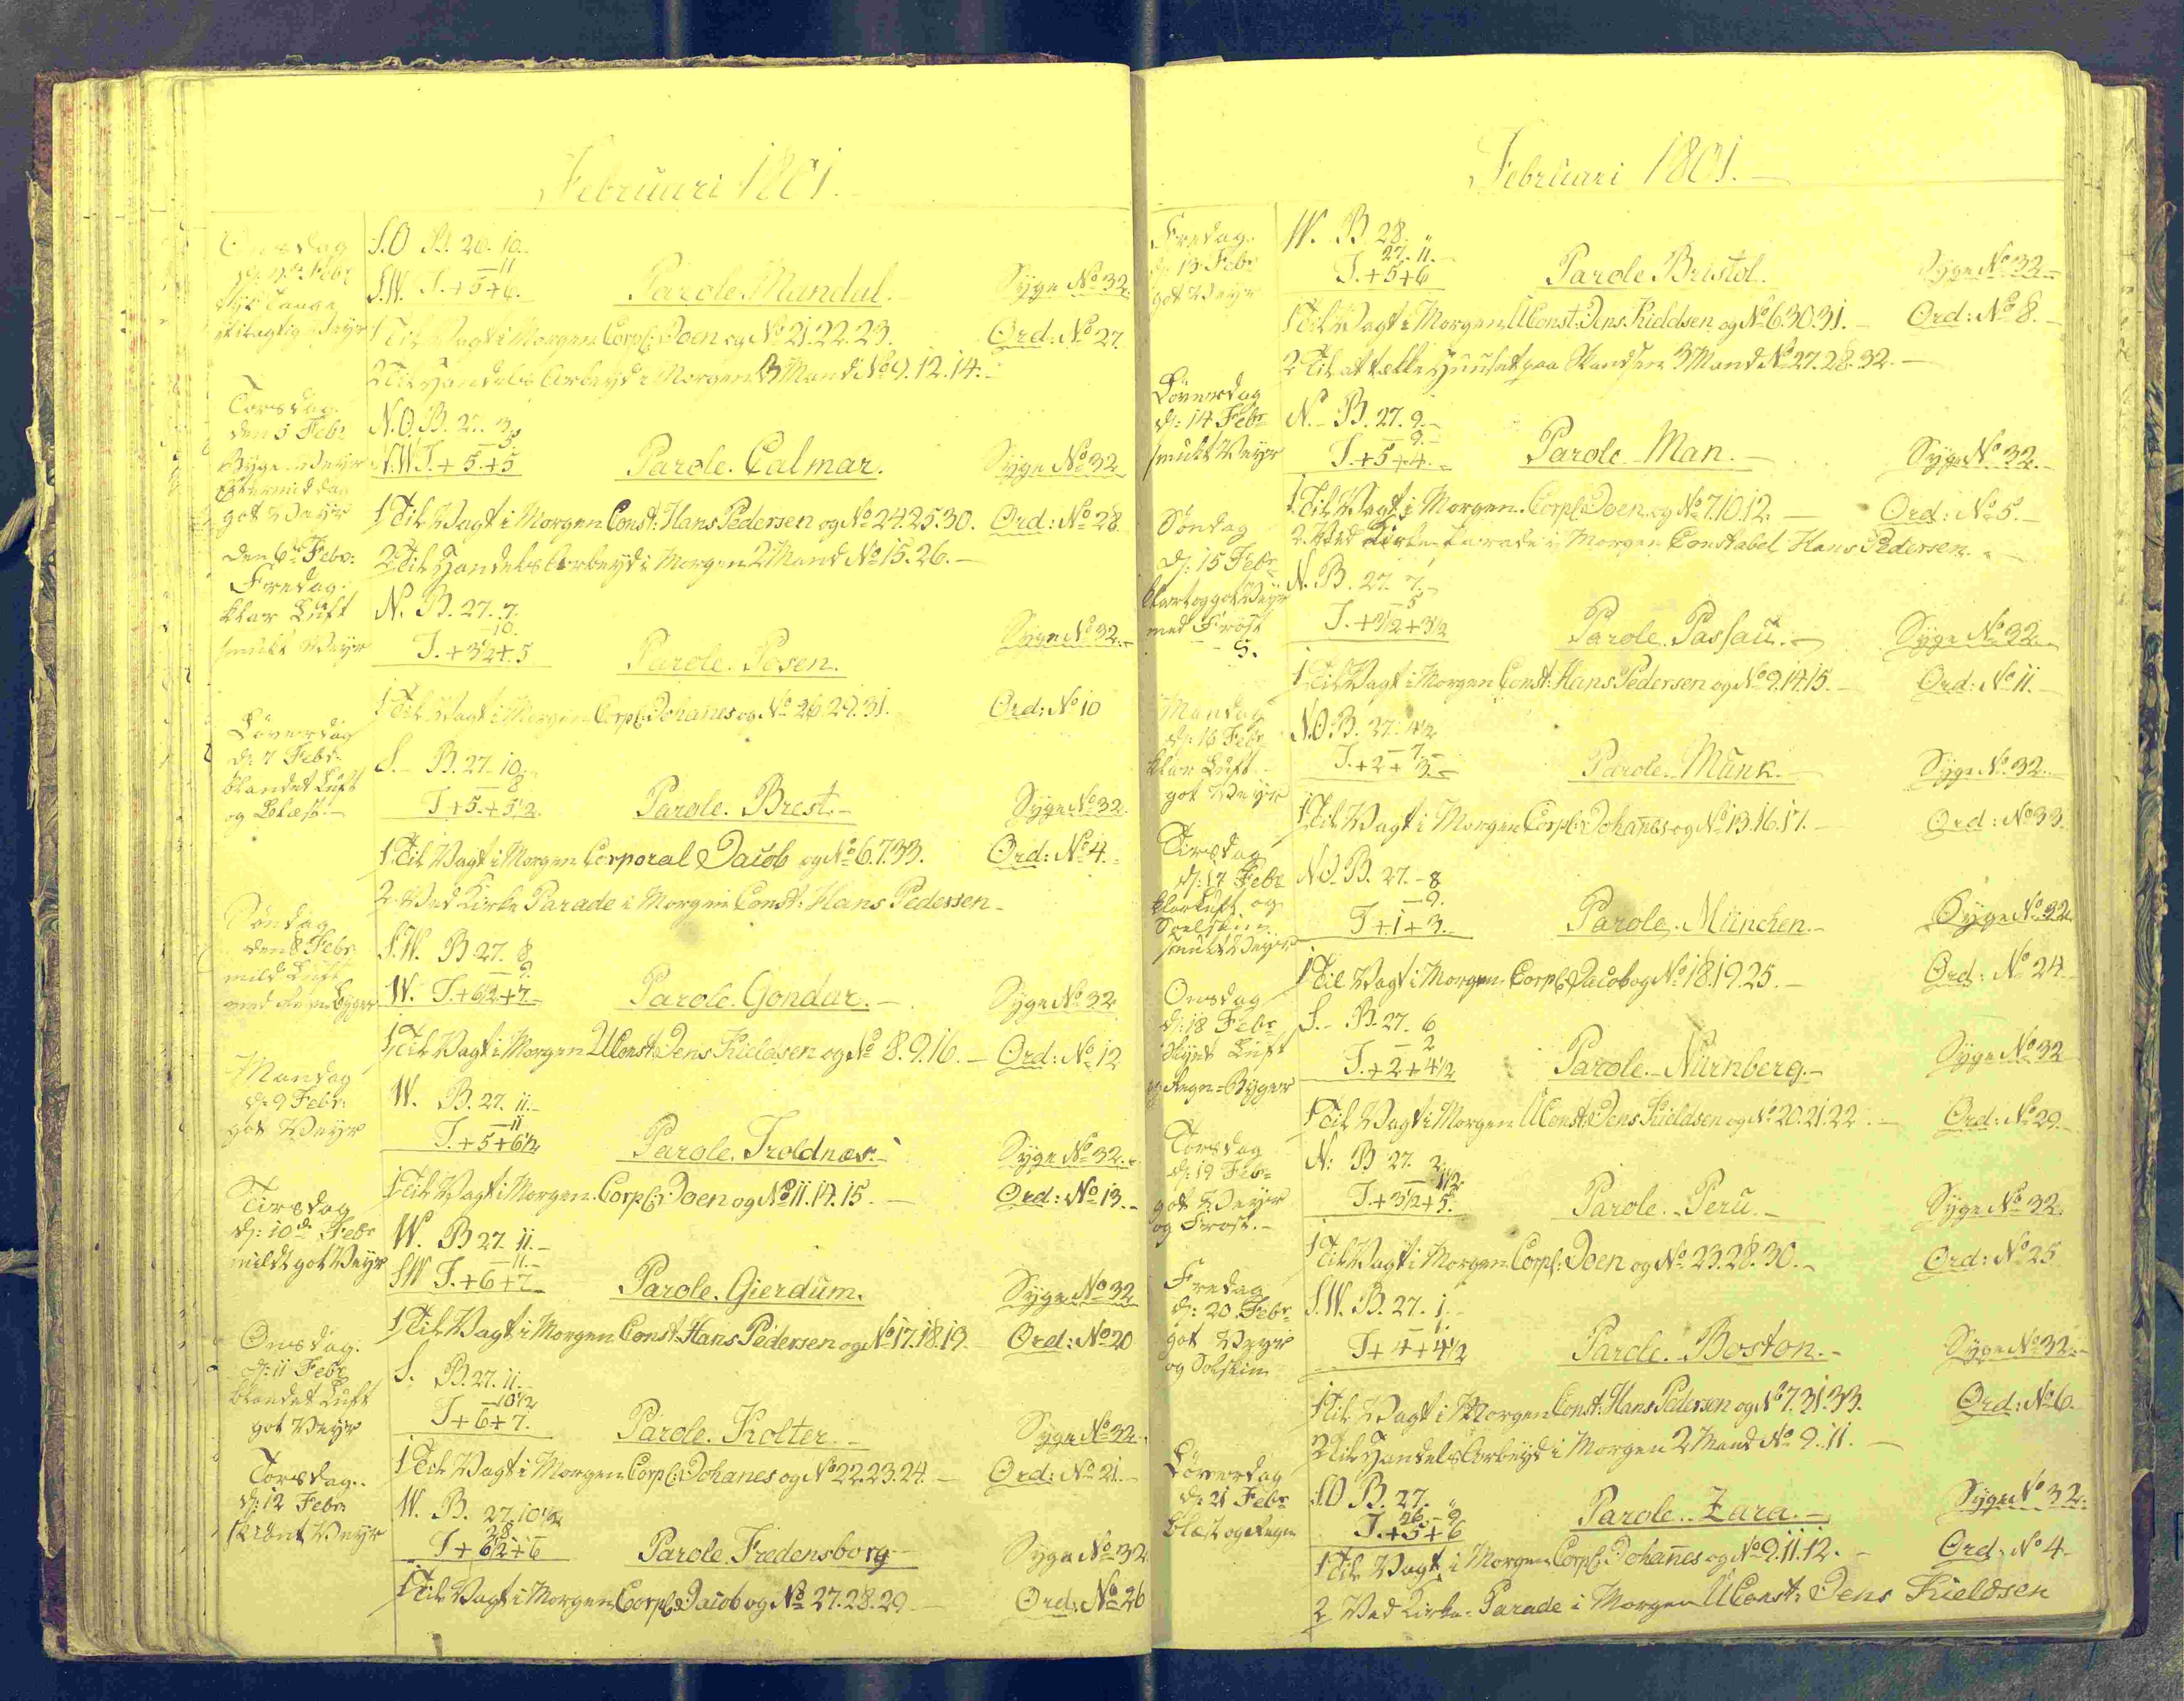 Februari 1801.
Onsdag
S.O B. 26. 10.
— 11
S.W. T. + 5 + 6.
Parole Mandal.
Syge No 32.
1 Til Vagt i Morgen Corpl: Joen og No 21. 22. 23.
Ord: No 27.
2 Til Handels Arbeyd i Morgen 3 Mand No 9. 12. 14.
Torsdag
den 5 Febr
Byge Veyr
Eftermiddag
got Veyr
N.O. B. 27. 3
— 5
N.W T. + 5. + 5
Parole. Calmar.
Syge No 32
1 Til Vagt i Morgen Const: Hans Pedersen og No 24. 25. 30.
Ord: No 28.
2 Til Handels Arbeyd i Morgen 2 Mand No 15. 26.
den 6te Febr:
Fredag.
klar Luft
smukt Veyr
N. B. 27. 7.
10.
T. + 3 1/2 + 5
Parole. Posen.
Syge No 32.
1 Til Vagt i Morgen Corpl: Johanes og No 26 29. 31.
Ord: No 10
Löverdag
d: 7 Febr
blandet Luft
og Blæst.
S. B. 27. 10.
— 8
T + 5. + 5 1/2.
Parole. Brest.
Syge No 32.
1 Til Vagt i Morgen Corporal Jacob og No 6. 7. 33.
Ord: No 4.
2 Ved Kirke Parade i Morgen Const: Hans Pedersen
Söndag
den 8 Febr
mild Luft
S.W. B 27. 8
— 9.
W. T. + 6 1/2 + 7
Parole. Gondar.
Syge No 32
1 Til Vagt i Morgen UConst: Jens Kieldsen og No 8. 9. 16.
Ord: No 12
Mandag
d: 9 Febr:
got Veyr
W. B. 27. 11.
— 11
T. + 5 + 6 1/2
Parole. Troldnæs.
Syge No 32.
1 Til Vagt i Morgen Corpl: Joen og No 11. 14. 15.
Ord: No 13.
Tirsdag
d: 10de Febr
mildt got Veyr
W. B 27. 11.
— 11.
SW T. + 6 + 7
Parole. Gierdum.
Syge No 32
1 Til Vagt i Morgen Const: Hans Pedersen og No 17. 18. 19
Ord: No 20
Onsdag.
d: 11 Febr
blandet Luft
got Veyr
S. B. 27. 11.
— 10 1/2
T + 6 + 7.
Parole. Kolter.
Syge No 32.
1 Til Vagt i Morgen Corpl: Johanes og No 22. 23. 24.
Ord: No 21.
Torsdag.
d: 12 Febr
skiönt Veyr
W. B. 27. 10 1/2
28.
T + 6 1/2 + 6
Parole. Fredensborg
Syge No 32
1 Til Vagt i Morgen Corpl: Jacob og No 27. 28. 29
Ord: No 26
Februari 1801.
Fredag.
d: 13 Febr
got Veyr
W. B 28. "
27. 11.
T. + 5 + 6
Parole Bristol.
Syge No 32
1 Til Vagt i Morgen UConst: Jens Kieldsen og No 6. 30. 31.
Ord: No 8.
2 Til at tække Huuset paa Skandsen 3 Mand No 27. 28. 32.
Löverdag
d: 14 Febr
smukt Veyr
N. B. 27. 9.
— 9.
T. + 5 + 4.
Parole Man.
Syge No 32.
1 Til Vagt i Morgen Corpl: Joen og No 7. 10. 12.
Ord: No 5.
2. Ved Kirke Parade i Morgen Constabel Hans Pedersen.
Söndag
d: 15 Febr
klart og got Veyr
med Frost
5.
N. B. 27. 7.
— 5
T. + 3 1/2 + 3 1/2
Parole. Passau.
Syge No 32.
1 Til Vagt i Morgen Const: Hans Pedersen og No 9. 14. 15.
Ord: No 11.
Mandag
d: 16 Febr
klar Luft
got Veyr
N.O. B. 27. 4 1/2
— 7.
T. + 2 + 3.
Parole. Munk.
Syge No 32.
1 Til Vagt i Morgen Corpl: Johañes og No 13. 16. 17.
Ord: No 33.
Tirsdag
d: 17 Febr
klar Luft og
Soelskin
smukt Veyr
N.O. B. 27. 8
— 9.
T + 1 + 3.
Parole. München.
Syge No 32
1 Til Vagt i Morgen Corpl: Jacob og No 18. 19. 25.
Ord: No 24
Onsdag
d: 18 Febr
Skyet Luft
og Regn-Byger
S. B. 27. 6
— 2
T. + 2 + 4 1/2
Parole. Nürnberg.
Syge No 32
1 Til Vagt i Morgen UConst: Jens Kieldsen og No 20. 21. 22.
Ord: No 29.
Torsdag
d: 19 Febr
got Veyr
og Frost.
N: B 27. 2
— 1 1/2
T. + 3 1/2 + 5.
Parole. Peru.
Syge No 32.
1 Til Vagt i Morgen Corpl: Joen og No 23. 28. 30.
Ord: No 25
Fredag
d: 20 Febr
got Veyr
og Solskin
S.W. B. 27. 1.
— 1.
T + 4 + 4 1/2
Parole. Boston.
Syge No 32.
1 Til Vagt i Morgen Const: Hans Pedersen og No 7. 31. 33.
Ord: No 6.
2 Til Handels Arbeyd i Morgen 2 Mand No 9. 11.
Löverdag
d: 21 Febr
blæst og Regn
S.O B. 27. "
26 - 9
T. + 5 + 6
Parole. Zara.
Syge No 32.
1 Til Vagt i Morgen Corpl: Johañes og No 9. 11. 12.
Ord: No 4
2 Ved Kirke-Parade i Morgen UConst: Jens Kieldsen